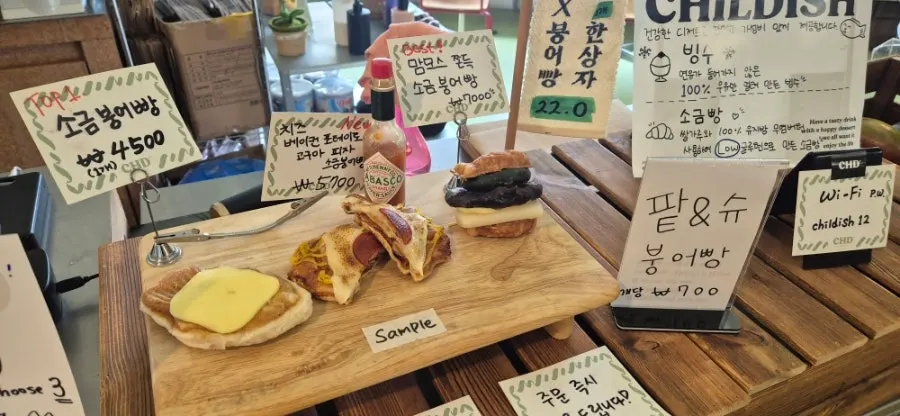 Top 1
소금붕어빵
₩4500
(1개)
CHD
New
치즈
베이컨 포테이토
고구마 피자
소금붕어빵
₩5700
TABASCO
Best!
맘모스 쫀득
소금붕어빵
₩7000
X 붕어빵
한상자
22.0
CHILDISH
빙수
연유가 들어가지 않은
100% 우유만 갈아 만든 빙수
소금빵
쌀가루와 100% 유지방 무염버터만
사용하여 LOW 글루텐으로 만든 소금빵
Have a tasty drink
with a happy dessert
you all want it
enjoy the rest
CHD
Wi-Fi P.W
childish 12
CHD
팥&슈
붕어빵
개당 ₩700
Sample
주문 즉시
choose 3